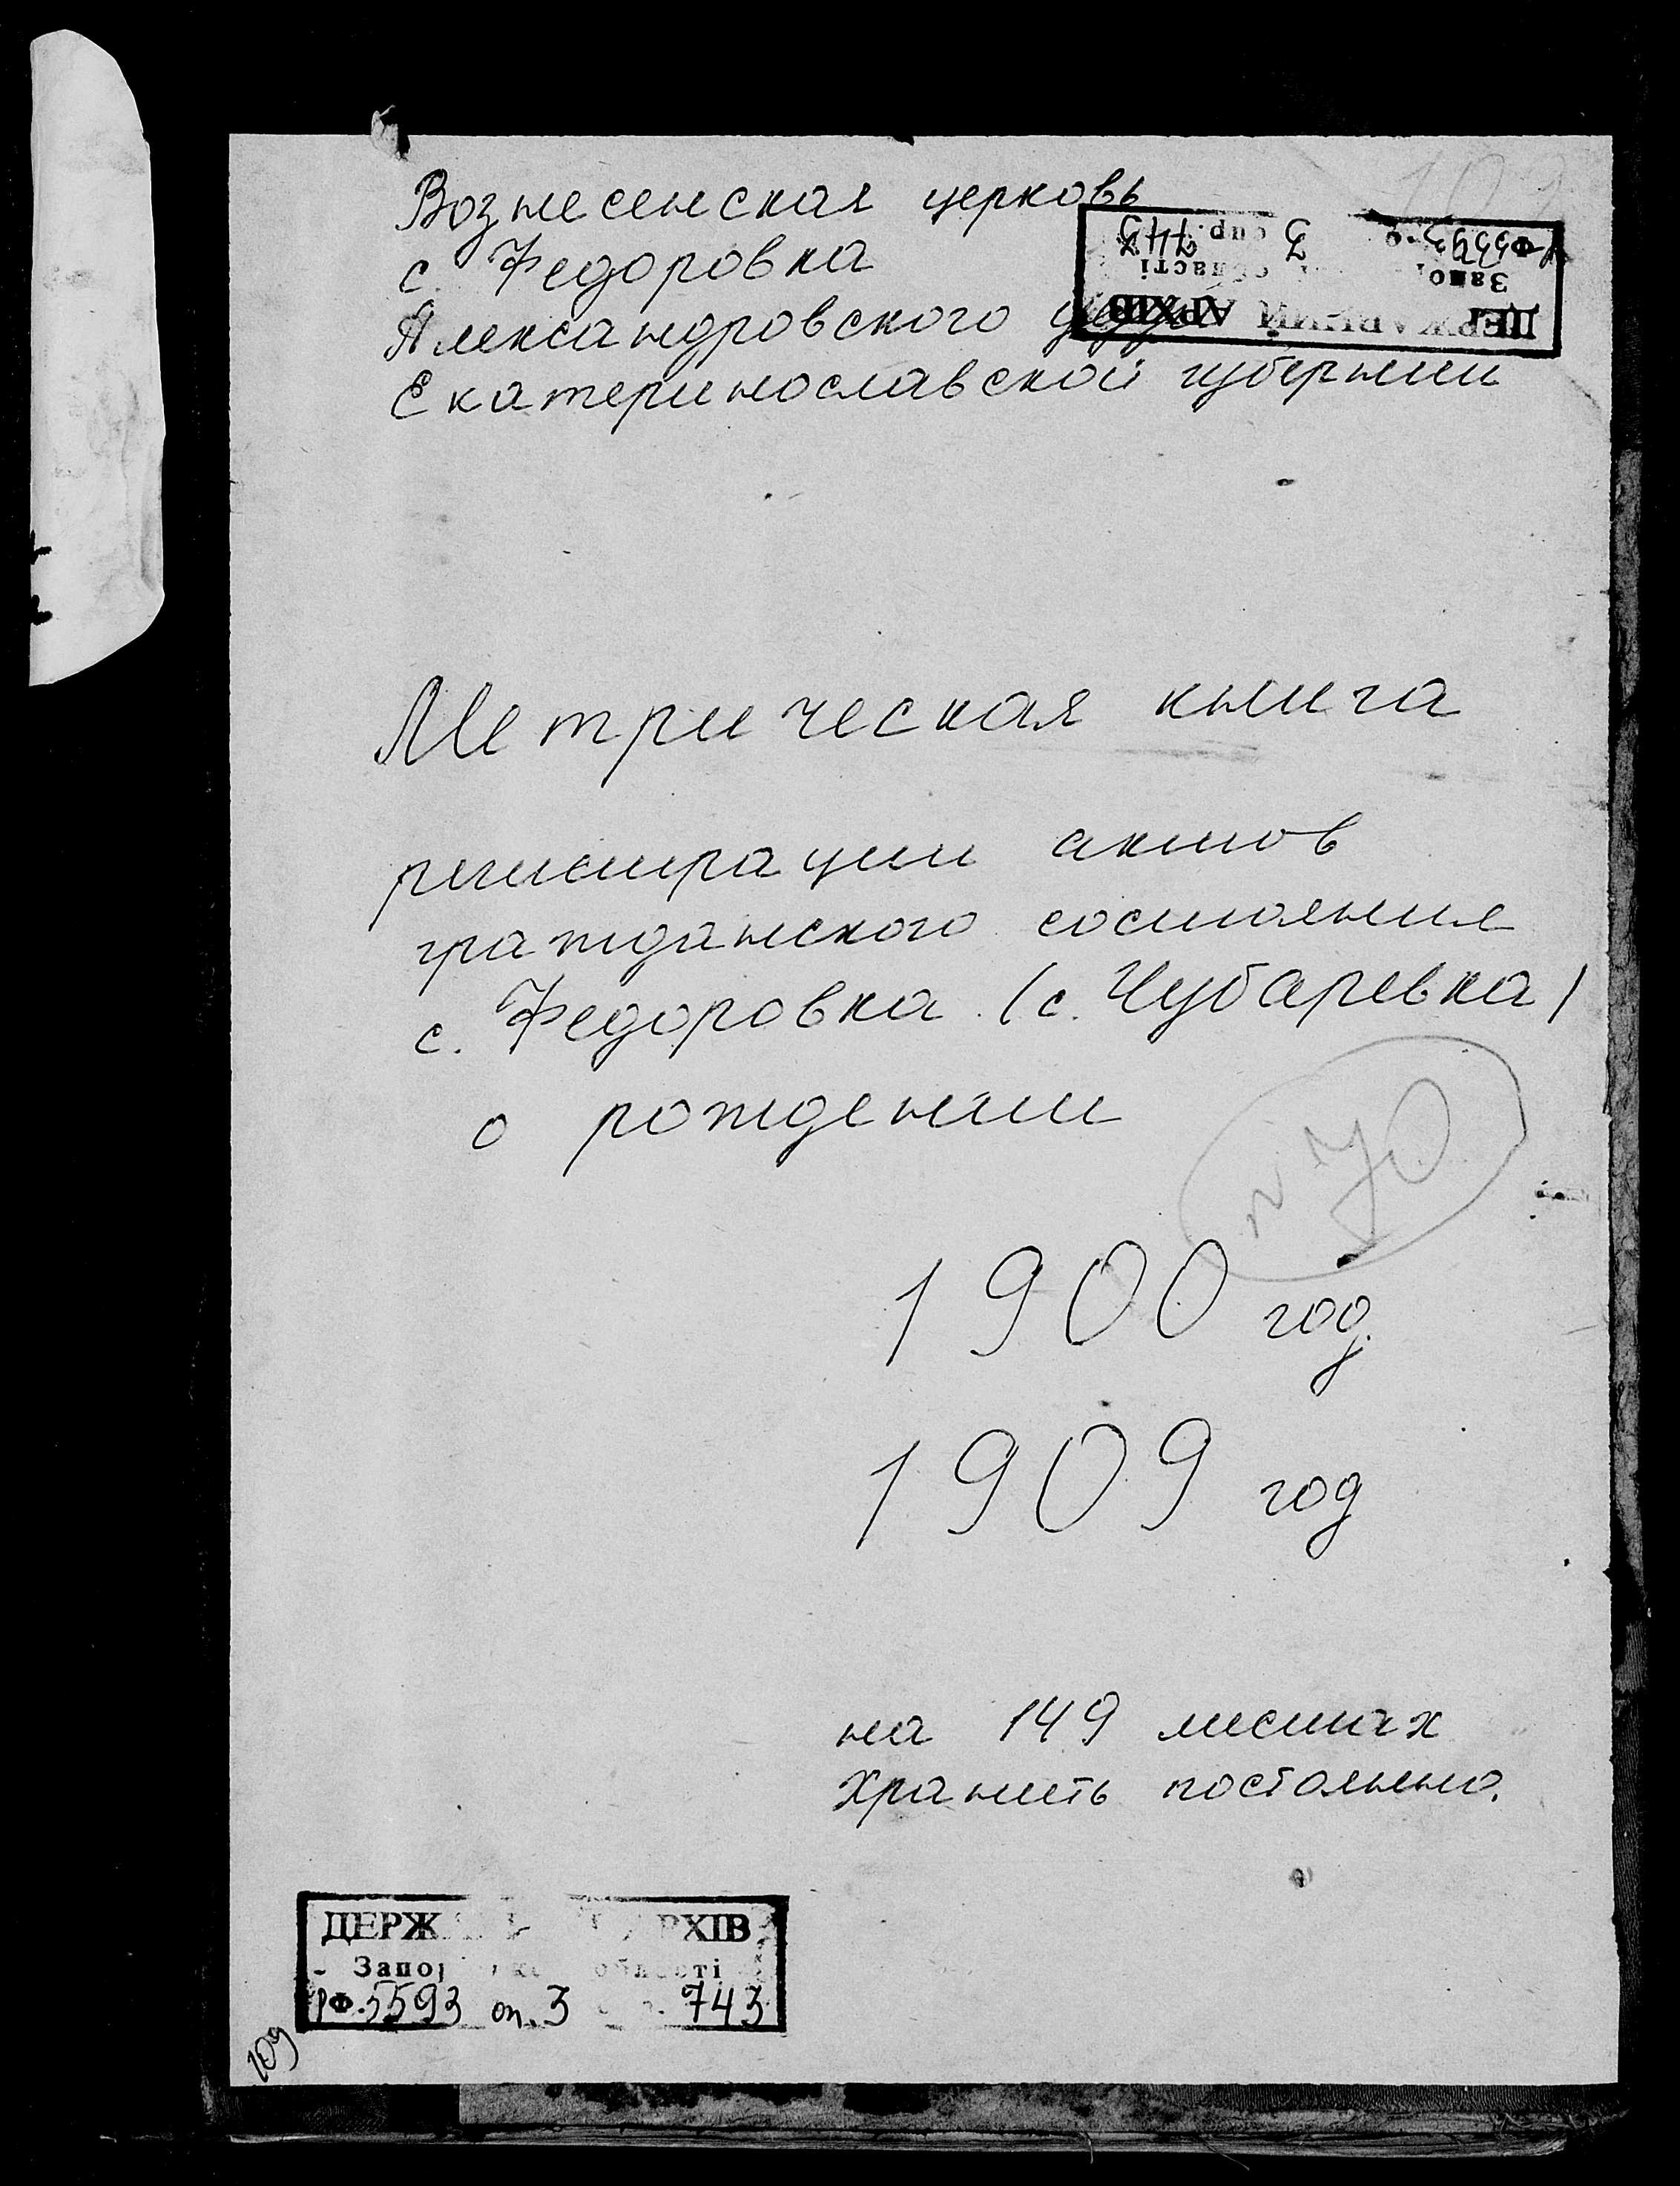 Вознесенская церковь
с. Федоровка
Александровского уезда
Екатеринославской губернии
ДЕРЖАВНИЙ АРХІВ
області
Метрическая книга
регистрации актов
гражданского состояния
с. Федоровка (с. Чубаревка)
о рождении
N 70
1900 год
1909 год
на 149 листах
Хранить постоянно.
ДЕРЖ РХІВ
Запор області
Ф. 5593 оп. 3 743
109